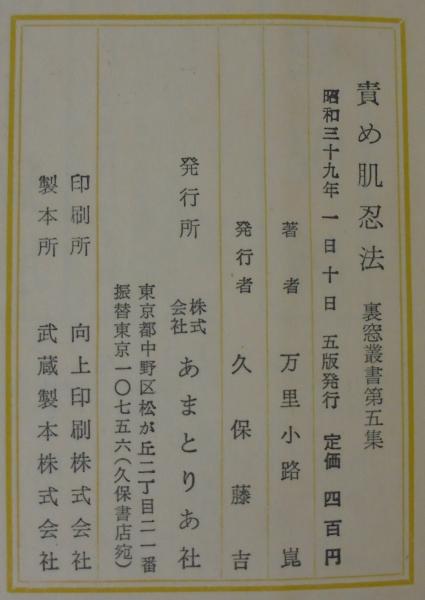 責め肌忍法 裏窓叢書第五集
昭和三十九年 一日十日 五版発行 定価 四百円
著者 万里小路 崑
発行者 久保藤吉
発行所 株式会社 あまとりあ社
東京都中野区松が丘二丁目二一番
振替東京一〇七五六(久保書店宛)
印刷所 向上印刷株式会社
製本所 武蔵製本株式会社